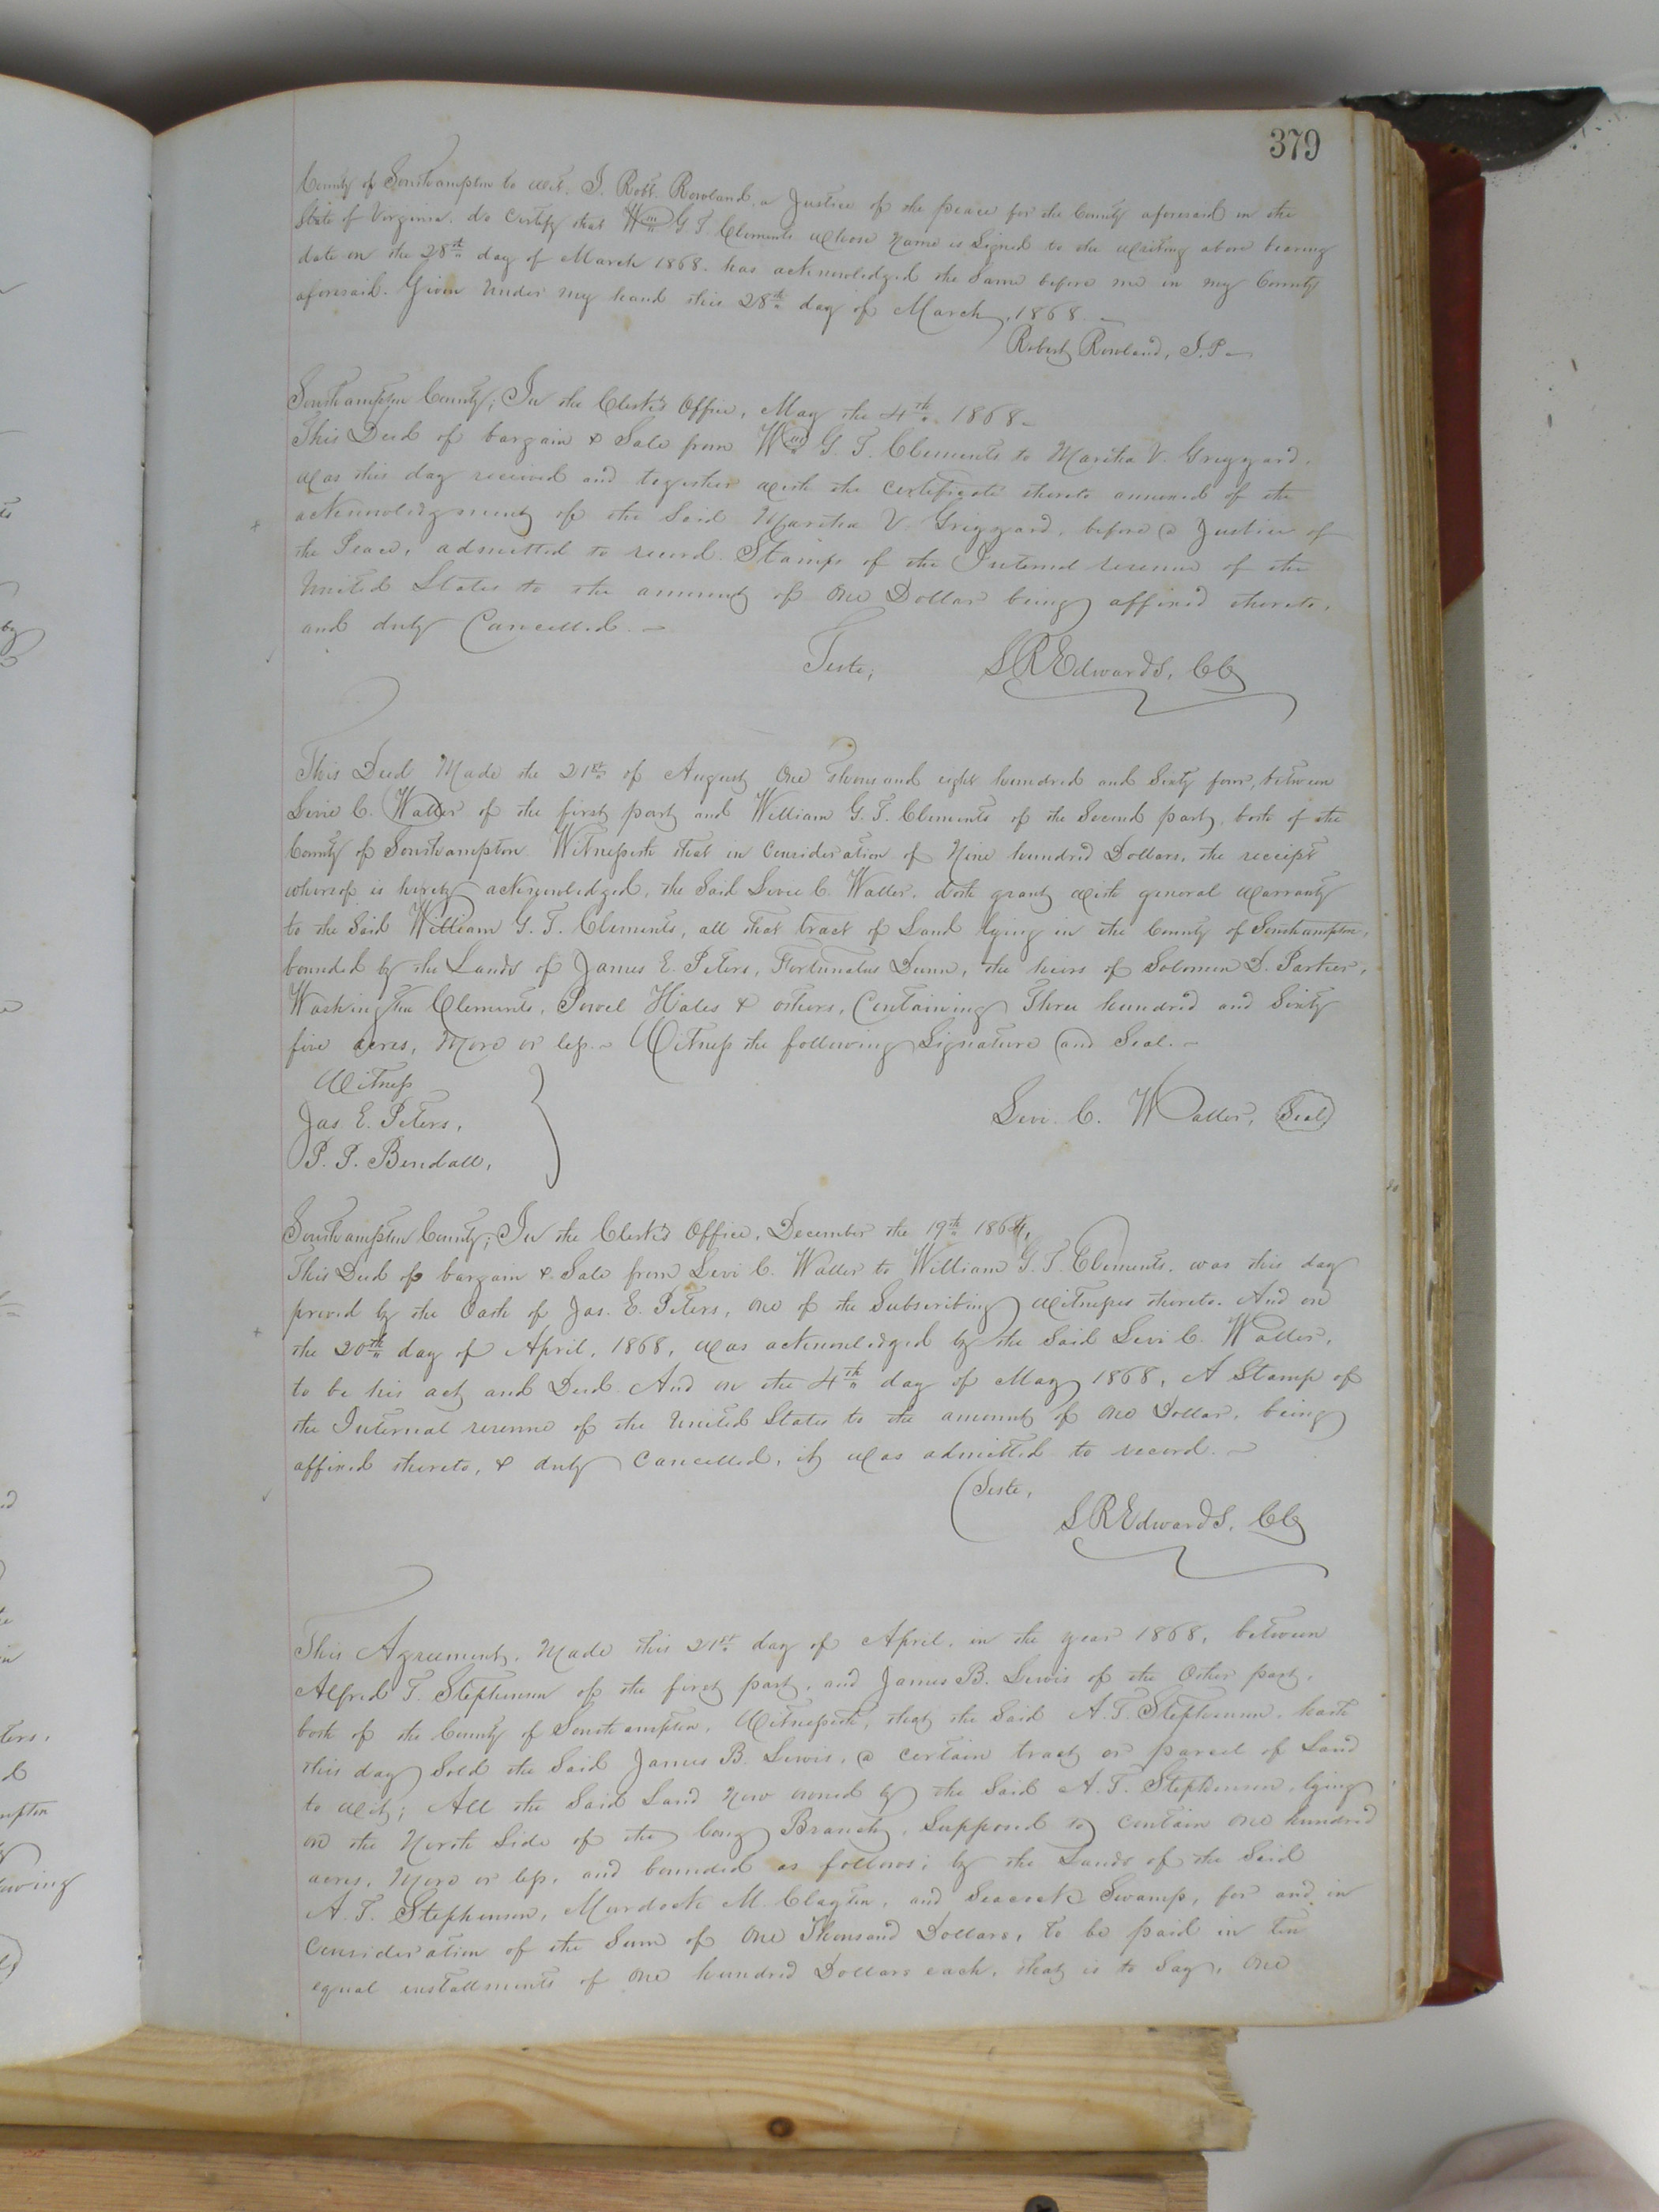 379
County of Southampton to wit: I Robt. Rowland, a Justice of the peace for the County aforesaid in the
State of Virginia, do certify that Wm G. T. Clements whose name is Signed to the writing above bearing
date on the 28th day of March 1868. has acknowledged the Same before me in my County
aforesaid. Given under my hand this 28th day of March, 1868.
Robert Rowland, J.P.
Southampton County; In the Clerk's Office, May the 4th 1868.
This Deed of bargain & Sale from Wm G. T. Clements to Martha V. Griggard.
was this day received and together with the certificate thereto annexed of the
acknowledgment of the Said Martha V. Griggard, before a Justice of
the Peace, admitted to record. Stamps of the Internal revenue of the
United States to the amount of One Dollar being affixed thereto,
and duly Cancelled.
Teste,
L R Edwards, CC
This Deed Made the 21st of August One Thousand eight hundred and Sixty four, between
Levie C. Waller of the first part and William G. T. Clements of the Second part, both of the
County of Southampton Witnesseth that in Consideration of Nine hundred Dollars, the receipt
whereof is hereby acknowledged, the Said Levie C. Waller, doth grant with general Warranty
to the Said William G. T. Clements, all that tract of Land lying in the County of Southampton,
bounded by the Lands of James E. Peters, Fortunatus Dunn, the heirs of Solomon D. Parker,
Washington Clements, Powel Hales & others, Containing Three hundred and Sixty
five acres, More or less. Witness the following Signature and Seal.
Witness
Jas E. Peters,
Levi. C. Waller, Seal
P. P. Bendall,
Southampton County; In the Clerk's Office, December the 19th 1864,
This Deed of bargain & Sale from Levi C. Waller to William G. T. Clements. was this day
proved by the Oath of Jas. E. Peters, one of the Subscribing Witnesses thereto. And on
the 20th day of April, 1868, was acknowledged by the Said Levi C. Waller,
to be his act and Deed. And on the 4th day of May 1868, A Stamp of
the Internal revenue of the United States to the amount of One Dollar, being
affixed thereto, & duly Cancelled, it was admitted to record.
Teste,
L R Edwards, CC
This Agreement, Made this 21st day of April, in the year 1868, between
Alfred T. Stephenson of the first part, and James B. Lewis of the Other part,
both of the County of Southampton, Witnesseth, that the Said A. T. Stephenson, hath
this day Sold the Said James B Lewis, a certain tract or parcel of Land
to wit; All the Said Land now owned by the Said A. T. Stephenson, lying
on the North Side of the long Branch, Supposed to contain one hundred
acres, More or less, and bounded as follows; by the Lands of the Said
A. T. Stephenson, Murdock M. Clayton, and Seacock Swamp, for and in
Consideration of the Sum of One Thousand Dollars, to be paid in ten
equal installments of one hundred Dollars each, that is to Say, One